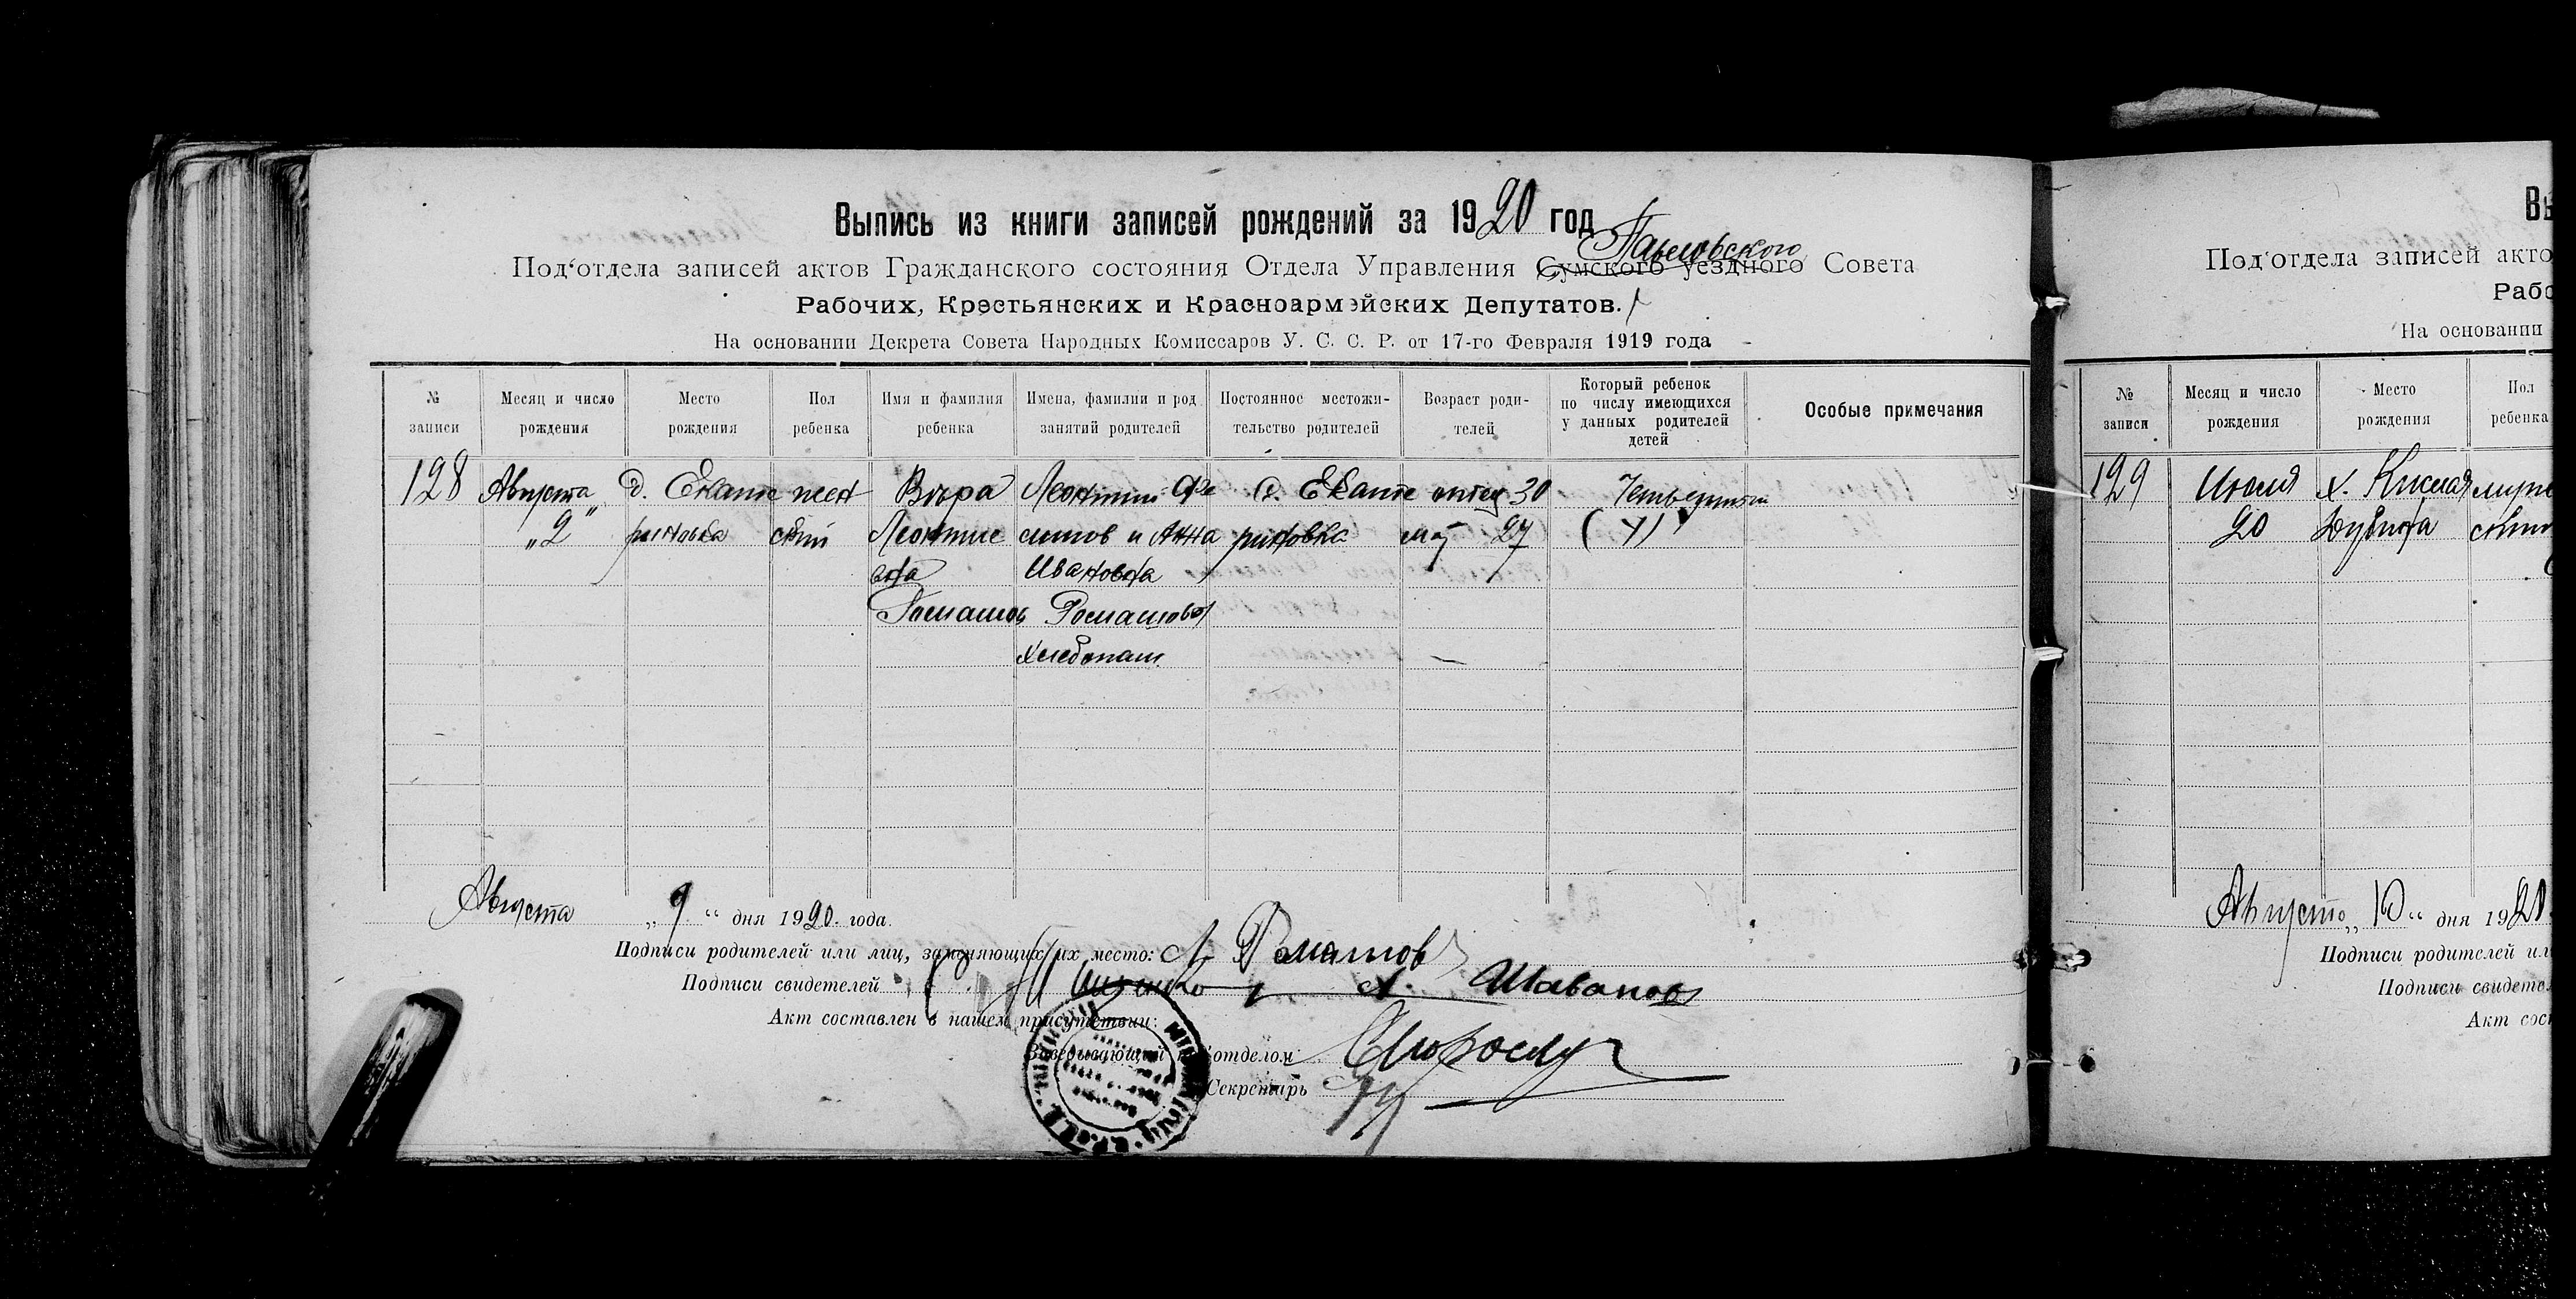 Выпись из книги записей рождений за 1920 год
Павловского
Под'отдела записей актов Гражданского состояния Отдела Управления Сумского уездного Совета
Рабочих, Крестьянских и Красноармейских Депутатов.
На основании Декрета Совета Народных Комиссаров У. С. С. Р. от 17-го Февраля 1919 года
№ записи
Месяц и число рождения
Место рождения
Пол ребенка
Имя и фамилия ребенка
Имена, фамилии и род занятий родителей
Постоянное местожительство родителей
Возраст родителей
Который ребенок по числу имеющихся у данных родителей детей
Особые примечания
128 Августа д. Екате жен Вѣра Леонтий Фе д. Екате отец 30 Четвертый
„2" риновка ский Леонтие ситов и Анна риновка мать 27 (4)
вна Ивановна
Ромашов Ромашовы
хлебопаш.
Августа „9" дня 1920. года.
Подписи родителей или лиц, заменяющих их место: Л Ромашов
Подписи свидетелей А. Шаванов
Акт составлен в нашем присутствии:
Заведывающий под'отделом
Секретарь
Вы
Под'отдела записей акто
Рабо
На основании
№ записи
Месяц и число рождения
Место рождения
Пол ребенка
129 Июля х. Кислая мужс
20 Дубина ский
Августа „10" дня 1920.
Подписи родителей ил
Подписи свидетел
Акт сос